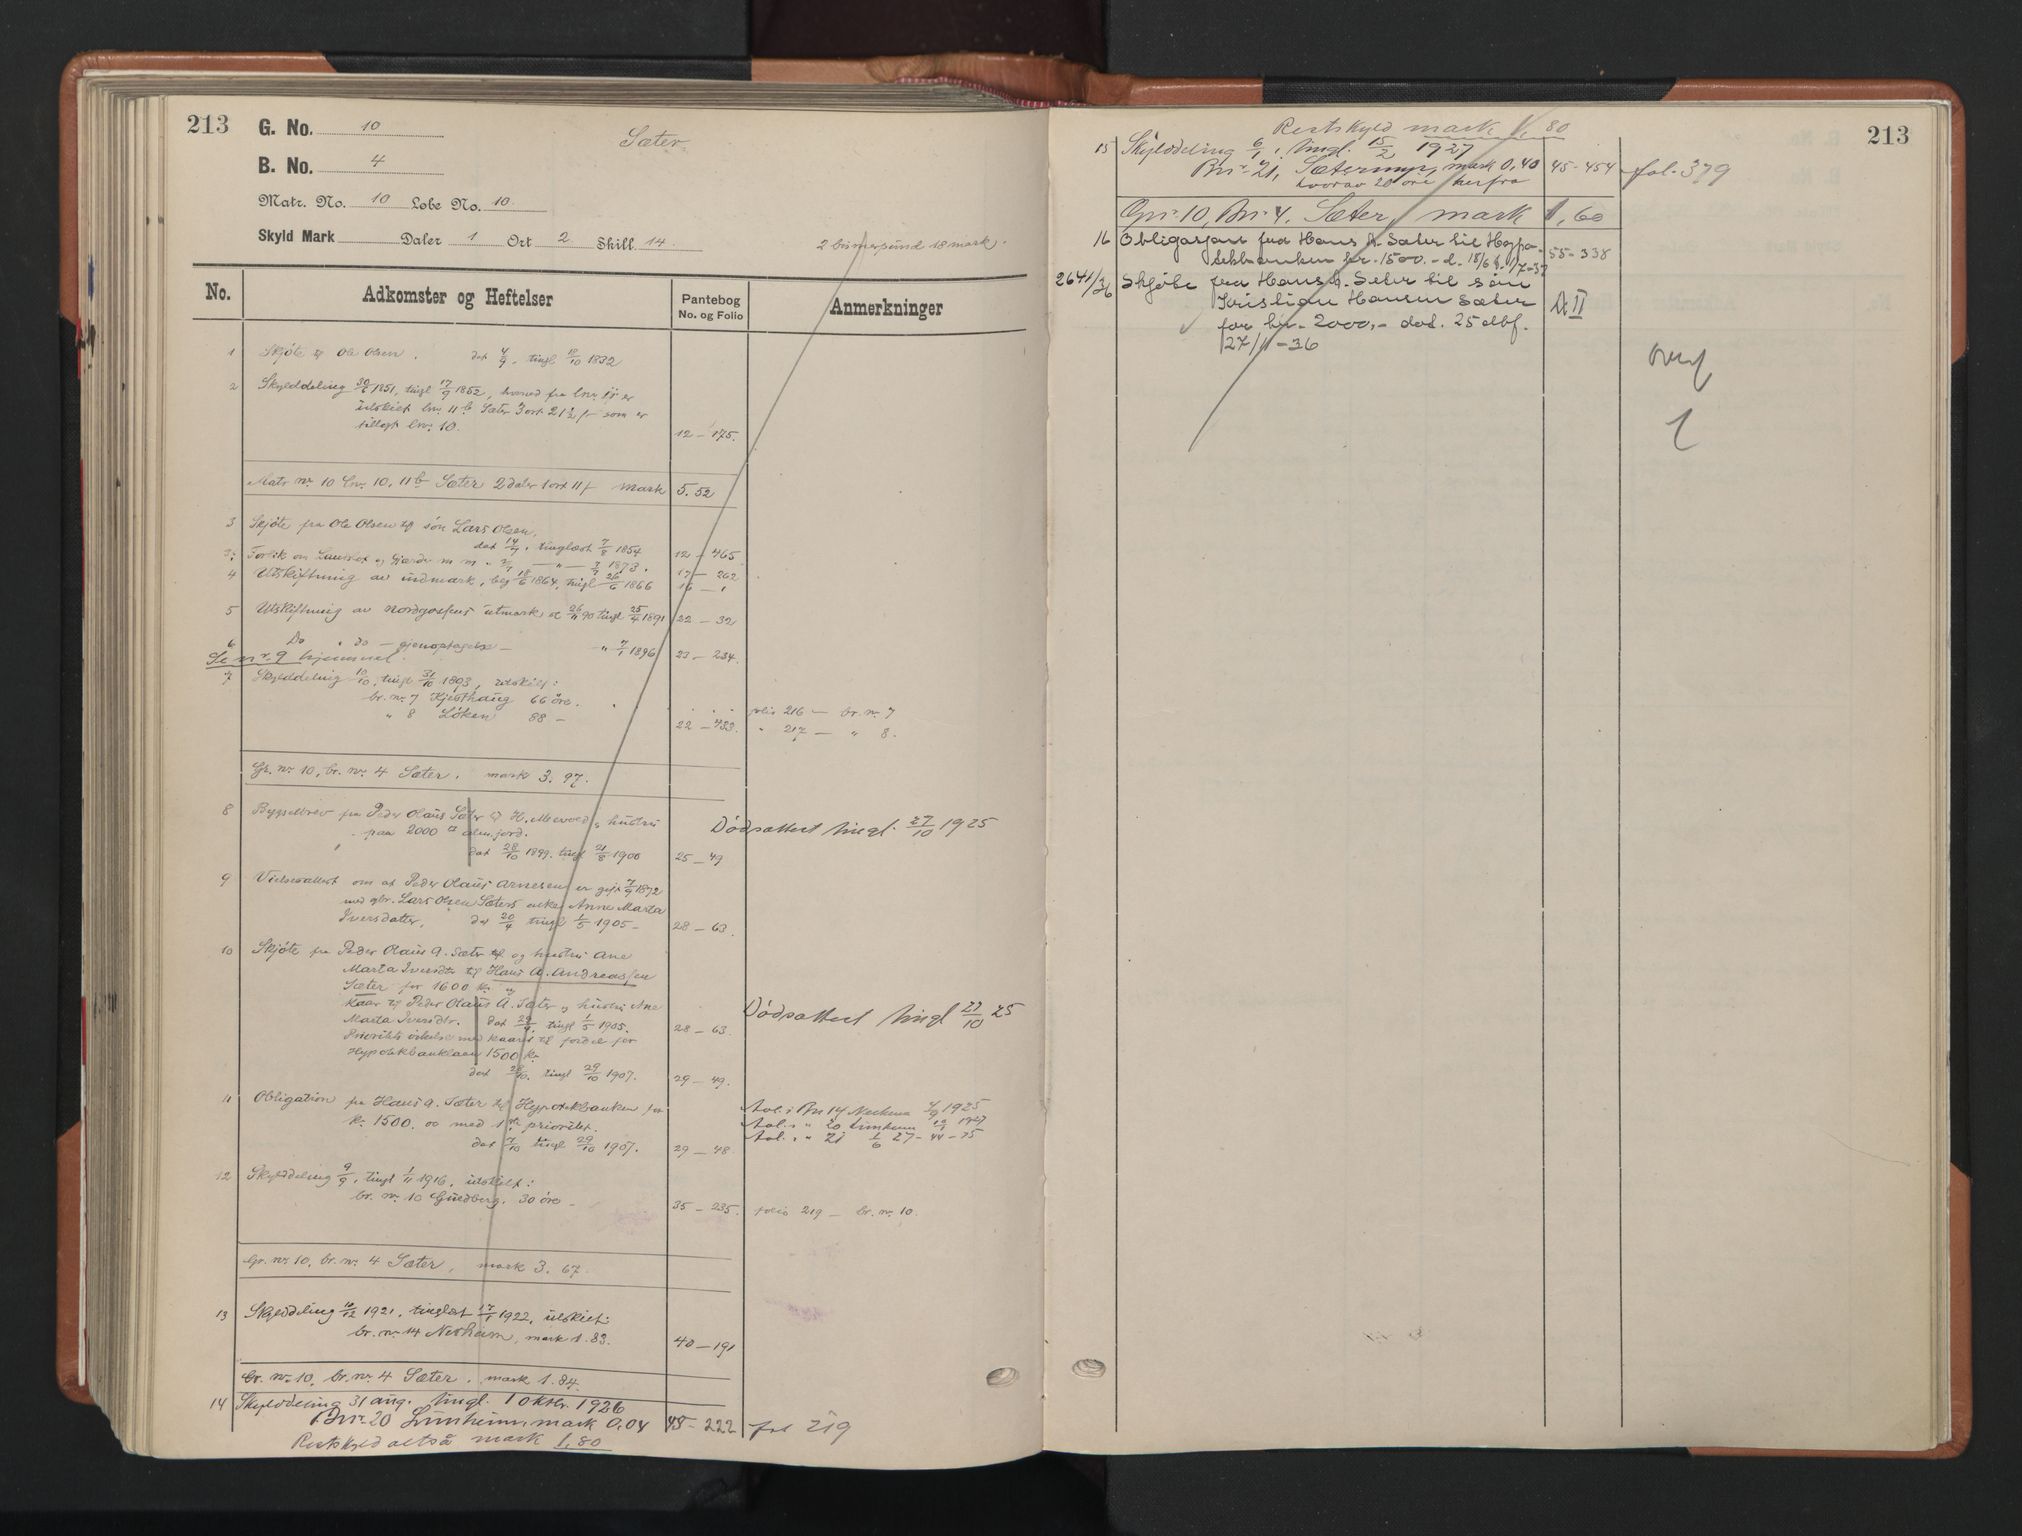 213
G. No. 10
Sæter.
B. No. 4
Matr. No. 10 Løbe No. 10.
Skyld Mark Daler 1 Ort 2 Skill 14. 2 bismerpund 18 mark.
No. Adkomster og Heftelser Pantebog No. og Folio Anmerkninger
1 Skjöte til Ole Olsen. dat 4/9, tingl 10/10 1832
2 Skylddeling 30/ 1851, tingl 17/9 1852, hvorved fra lnr. 11 er
utskiet lnr. 11 b Sæter 3 ort 21 1/2 som er
tillagt lnr. 10. 12 – 175.
Matr nr 10 lnr. 10, 11 b Sæter 2 daler 1 ort 11 mark 5.52
3 Skjöte fra Ole Olsen til sön Lars Olsen,
dat 14/7, tinglæst 7/8 1854 12 – 465
Forlik om og Gjærde m m. 1873. 17 – 262
4 Utskiftning av indmark, beg 18/6 1864, tingl 26/6 1866 16 – 1
5 Utskiftning av utmark, 26/11 90 tingl 25/4 1891 22 – 32
6 Do " do – gjenoptagelse – " 7/1 1896 23 – 234.
Se nr. 9 hjemmel.
7 Skylddeling 10/10, tingl 31/10 1893, utskilt:
br. nr. 7 Kjesthaug 66 öre. folio 216 – br. nr. 7
" 8 Löken 88 – 22 – 433. " 217 – " 8.
Gr. nr. 10, br. nr. 4 Sæter. mark 3.97.
8 Bygselbrev fra Peder Olaus Sæter til H. og hustru
paa 2000 □ alen jord. Dödsattest tingl. 27/10 1925
dat 28/10 1899. tingl 21/8 1900 25 – 49
9 Vielsesattest om at Peder Olaus Arnesen er gift 7/9 1872
med gbr. Lars Olsen Sæters enke Anne Marta
Iversdatter. dat 20/4 tingl 1/5 1905 – 28 – 63.
10 Skjöte fra Peder Olaus A. Sæter og hustru Ane
Marta Iversdtr til Hans A. Andreassen
Sæter for 1600 kr. og
kaar til Peder Olaus A. Sæter og hustru Ane
Marta Iversdtr. dat 29/4, tingl 1/5 1905. 28 – 63. Dödsattest tingl 27/10 25
Prioritets vikelse med kaaret til fordel for
Hypotekbanklaan 1500 kr.
dat 28/10. tingl 29/10 1907. 29 – 49.
11 Obligation fra Hans A. Sæter til Hypotekbanken for
kr. 1500.00 med 1ste prioritet.
dat 7/10 tingl 29/10 1907. 29 – 48
1925
" 20 1927
" 21 1/6 27 – 44 – 75
12 Skylddeling 9/9, tingl 1/11 1916, utskilt:
br. nr. 10 Guldberg. 30 öre – 35 – 235. folio 219 – br. nr. 10.
Gr. nr. 10, br. nr. 4 Sæter, mark 3.67.
13 Skylddeling 10/12 1921, tinglæst 17/1 1922, utskiet:
br. nr. 14 Nesheim, mark 1.83. 40 – 191
Gr. nr. 10, br. nr. 4 Sæter. mark 1.84.
14 Skylddeling 31 aug. tingl. 1 oktbr. 1926
Bnr. 20 mark 0,04 45 – 222 fol 219
Restskyld altså mark 1,80
213
Restskyld mark 1,80
15 Skylddeling 6/1, tingl. 15/2 1927
Bnr. 21, Sætermyr, mark 0,40 45 – 454 fol. 379
hvorav 20 öre herfra
Gnr. 10, Bnr. 4. Sæter, mark 1,60
16 Obligasjon fra Hans A. Sæter til Hypo-
tekbanken kr. 1500.– d. 18/6 55 – 338
2641/36 Skjöte fra Hans A. Sæter til sön
Kristian Hansen Sæter
for kr. 2000,– dat. 25 dbf.
27/11 – 36
A II
overf
1